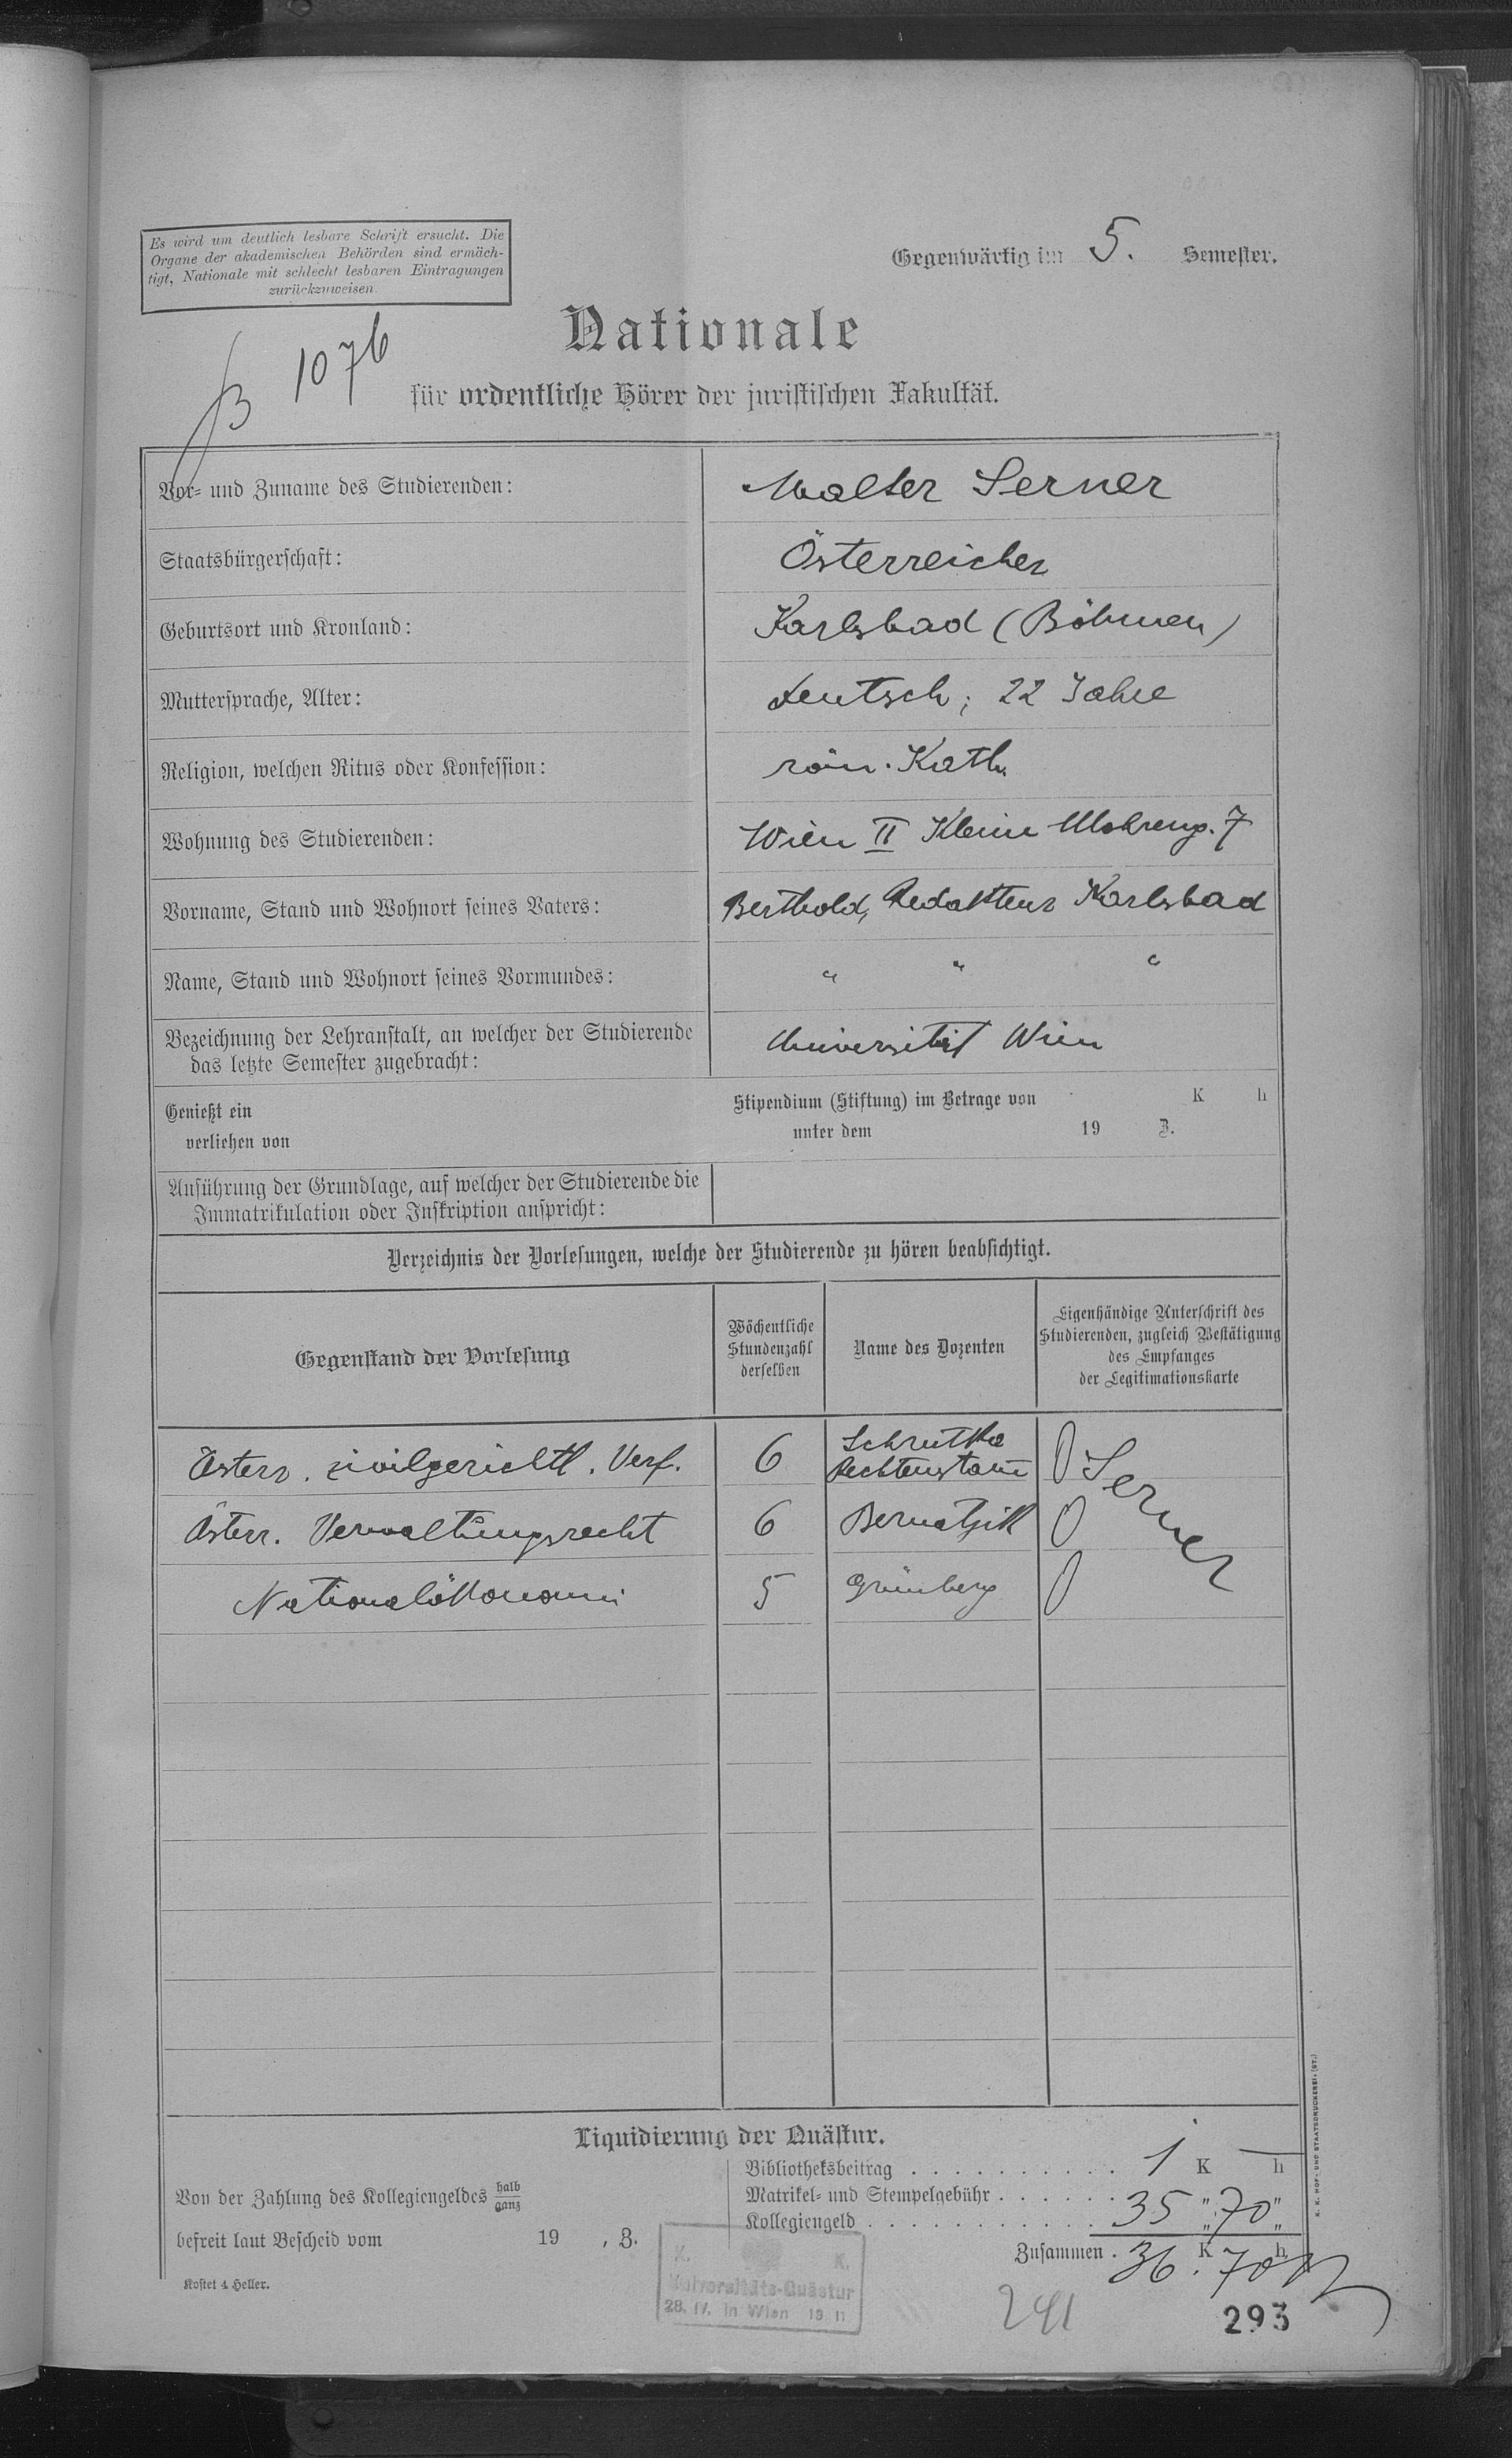 Es wird um deutlich lesbare Schrift ersucht. Die
Organe der akademischen Behörden sind ermäch-
tigt, Nationale mit schlecht lesbaren Eintragungen
zurückzuweisen.
Gegenwärtig im 5. Semester.
Nationale
1076
für ordentliche Hörer der juristischen Fakultät.
Vor- und Zuname des Studierenden: Walter Serner
Staatsbürgerschaft: Österreicher
Geburtsort und Kronland: Karlsbad (Böhmen)
Muttersprache, Alter: deutsch; 22 Jahre
Religion, welchen Ritus oder Konfession: röm. Kath.
Wohnung des Studierenden: Wien II Kleine Mohreng. 7
Vorname, Stand und Wohnort seines Vaters: Berthold, Redakteur Karlsbad
Name, Stand und Wohnort seines Vormundes: " " "
Bezeichnung der Lehranstalt, an welcher der Studierende
das letzte Semester zugebracht: Universität Wien
Genießt ein Stipendium (Stiftung) im Betrage von K h
verliehen von unter dem 19 Z.
Anführung der Grundlage, auf welcher der Studierende die
Immatrikulation oder Inskription anspricht:
Verzeichnis der Vorlesungen, welche der Studierende zu hören beabsichtigt.
Gegenstand der Vorlesung
Wöchentliche
Stundenzahl
derselben
Name des Dozenten
Eigenhändige Unterschrift des
Studierenden, zugleich Bestätigung
des Empfanges
der Legitimationskarte
Österr. zivilgerichtl. Verf. 6 Schrutka
Rechtenstamm
Serner
Österr. Verwaltungsrecht 6 Bernatzik
Nationalökonomie 5 Grünberg
Liquidierung der Quästur.
Von der Zahlung des Kollegiengeldes halb
ganz
befreit laut Bescheid vom 19 , Z.
Kostet 4 Heller.
Bibliotheksbeitrag . . . . . . . . . . 1 K — h
Matrikel- und Stempelgebühr . . . . . . " "
Kollegiengeld . . . . . . . . . . . . 35 " 70 "
Zusammen . 36 . K 70 h
K. K.
Universitäts-Quästur
28. IV. in Wien 19 11
241
293
K. K. HOF- UND STAATSDRUCKEREI. (ST.)